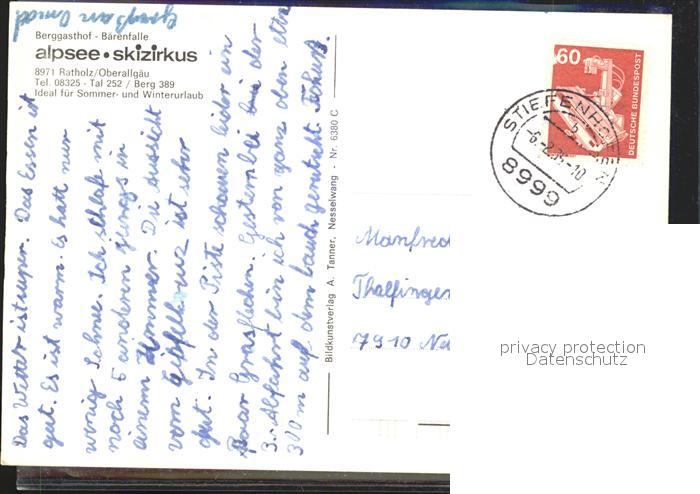 Gruß an Omach
Berggasthof - Bärenfalle
alpsee • skizirkus
8971 Ratholz/Oberallgäu
Tel. 08325 - Tal 252 / Berg 389
Ideal für Sommer- und Winterurlaub
Das Wetter ist super. Das Essen ist
gut. Es ist warm. Es hatt nur
wenig Schnee. Ich schlafe mit
noch 5 anderen Jungs in
einem Zimmer. Die aussicht
vom Gipfelkreuz ist sehr
gut. In der Piste schauen leider ein
paar Grasflecken. Gestern bei der
3. Alfahrt bin ich von ganz oben etw
300 m auf dem bauch gerutscht.
Bildkunstverlag A. Tanner, Nesselwang · Nr. 6380 C
60
DEUTSCHE BUNDESPOST
STIEFENHOFEN
-6.-2.85-10
8999
Manfred
Thalfinger
7910 Ne
privacy protection
Datenschutz